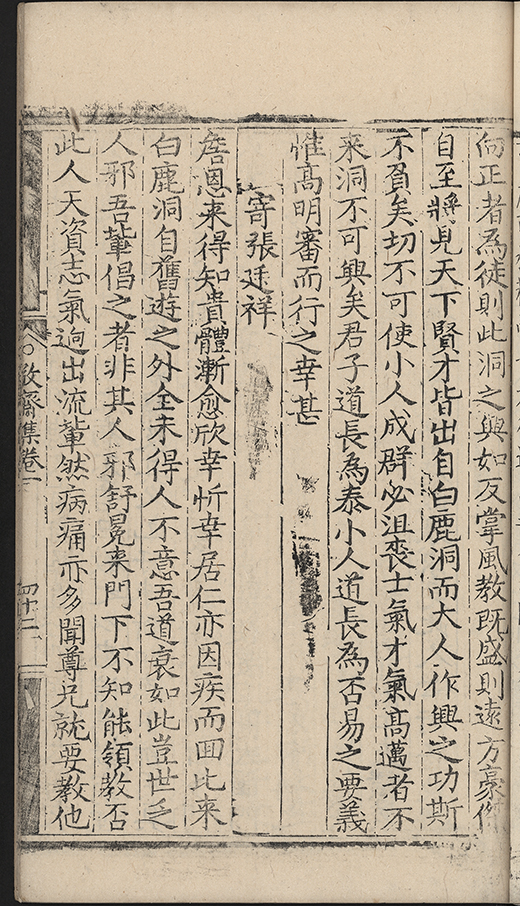 向正者為徒則此洞之興如反掌風教既盛則遠方豪傑
自至將見天下賢才皆出自白鹿洞而大人作興之功斯
不貧矣切不可使小人成群必沮喪士氣才氣高邁者不
来洞不可興矣君子道長為泰小人道長為否易之要義
惟高明審而行之幸甚
寄張廷祥
詹恩来得知貴體漸愈欣幸忻幸居仁亦因疾而囬此来
白鹿洞自舊遊之外全未得人不意吾道衰如此豈世乏
人邪吾軰倡之者非其人邪舒冕来門下不知能領教否
此人天資志氣逈出流軰然病痛亦多聞尊兄就要教他
敬齋集卷一
四十二